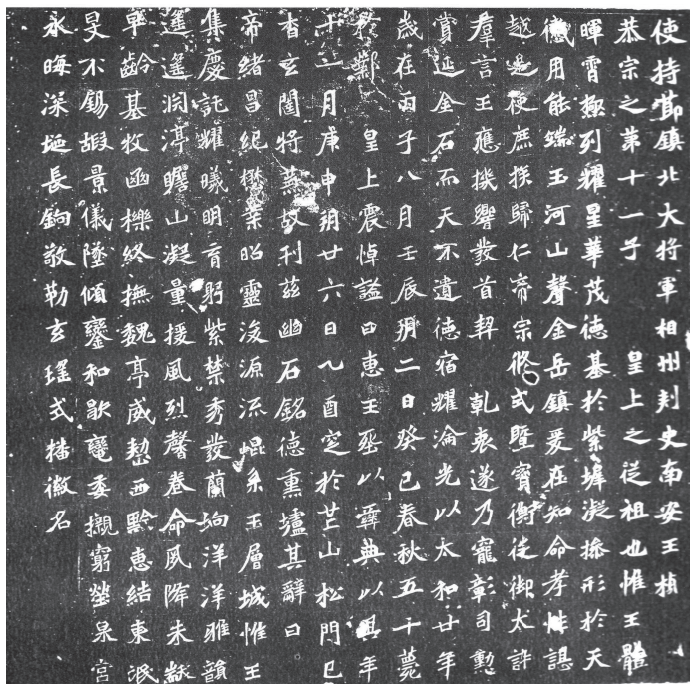 使持節鎮北大將軍相州刾史南安王楨
恭宗之第十一子　皇上之從祖也惟王體
暉霄極列耀星華茂德基於紫墀凝操形於天
儀用能端玉河山聲金岳鎮爰在知命孝性諶
越是使庶族歸仁帝宗攸式暨寶衡徙御太訏
羣言王應機響發首契　乹衷遂乃寵彰司勳
賞延金石而天不遺德宿耀淪光以太和廿年
歲在丙子八月壬辰朔二日癸巳春秋五十薨
於鄴　皇上震悼謚曰惠王葬以彝典以其年
十一月庚申朔廿六日乙酉窆於芒山松門已
杳玄闥將蕪故刊茲幽石銘德熏壚其辭曰
帝緒昌紀懋業昭靈浚源流崐系玉層城惟王
集慶託耀曦明育躬紫禁秀發蘭坰洋洋雅韻
遥遥淵渟瞻山凝量援風烈馨卷命夙降未黻
早齡基牧函櫟終撫魏亭威整西黔惠結東氓
旻不錫嘏景儀墜傾鑾和歇轊委櫬窮塋泉宮
永晦深埏長鈎敬勒玄瑤式播徽名